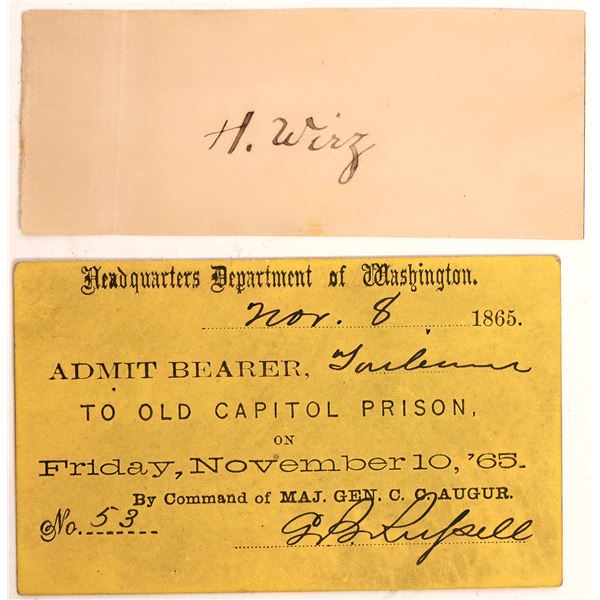 H. Wirz
Headquarters Department of Washington.
Nov. 8 1865.
ADMIT BEARER,
TO OLD CAPITOL PRISON,
ON
Friday, November 10, '65.
By Command of MAJ. GEN. C. C. AUGUR.
No. 53
G B Russell